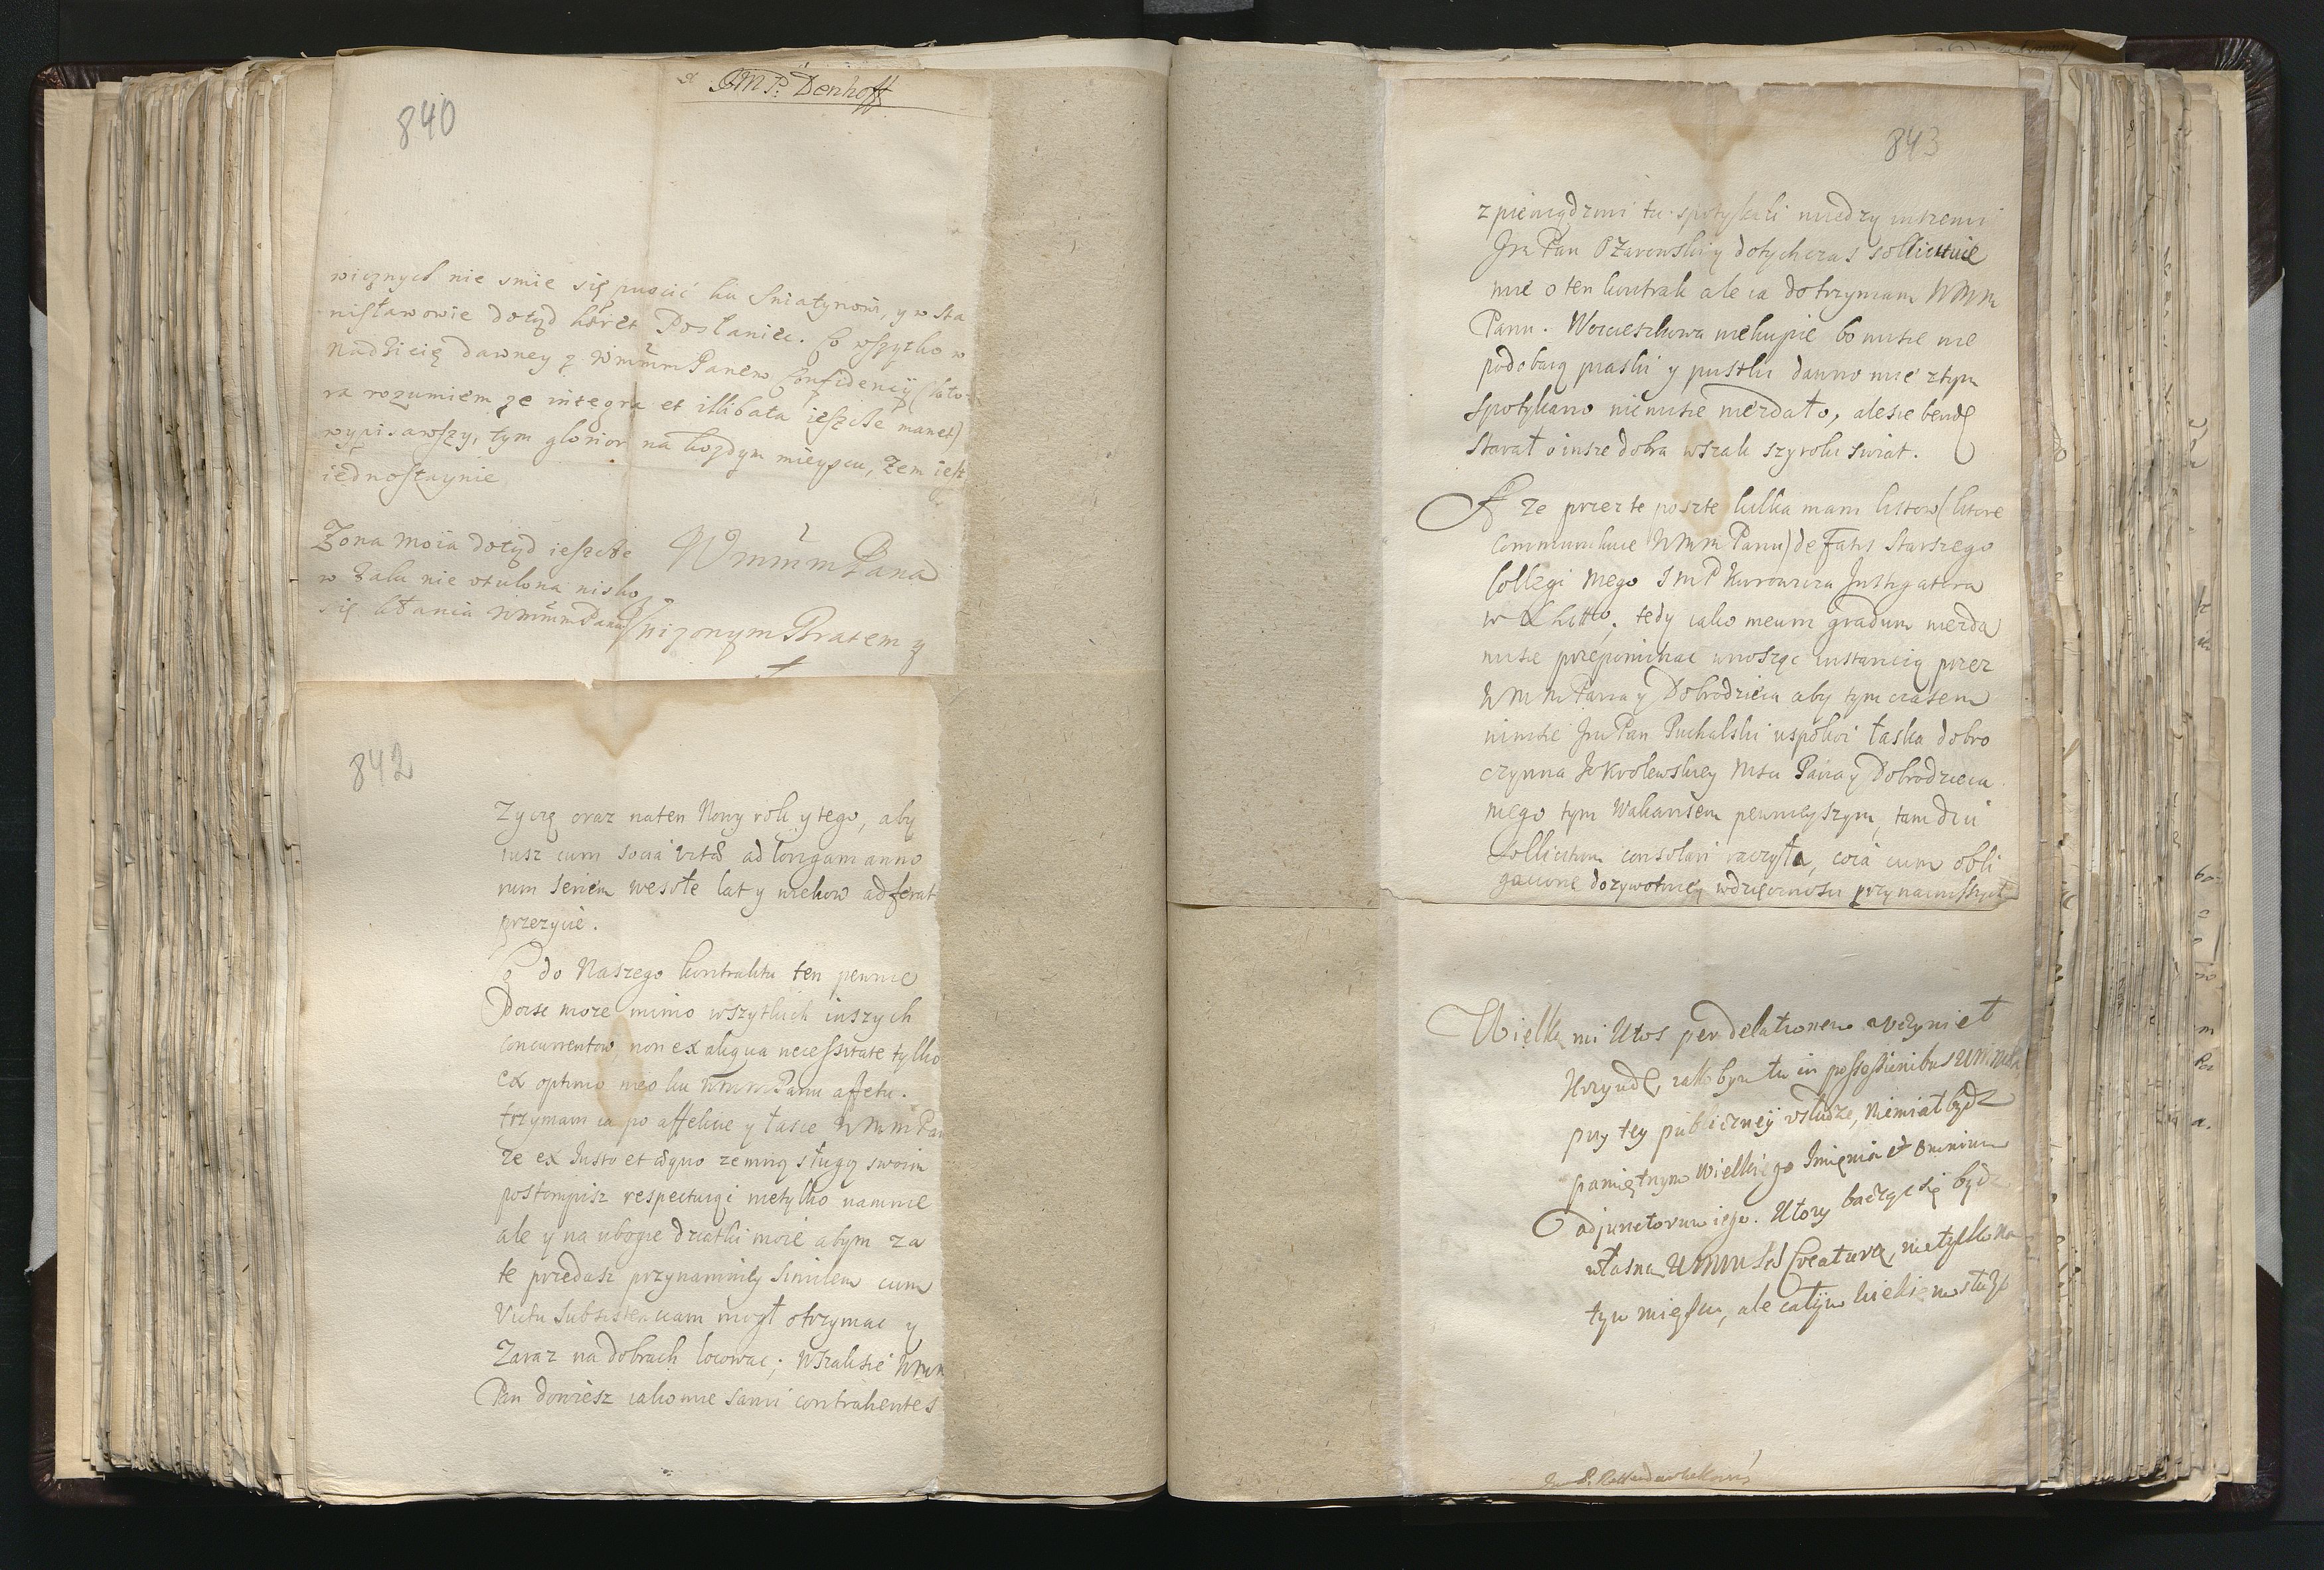 JMP: Denhoff
840
więznych nie smie się puscić ku Sniatynowi, y w Sta
nisławowie dotąd hæret Posłaniec. Co wszytko w
Nadzieię dawney z WmmPanem Confidencij (kto-
ra rozumiem że integra et illibata ieszcże manet)
wypisawszy, tym glorior na kożdym mieyscu, Żem iest
iednostaynie
WmmmPana
Żona moia dotąd ieszcże
w żalu nie utulona nisko
się kłania WmmPanu
Vniżonym Bratem y
842
Zyczę oraz naten Nowy rok y tego, aby
iusz cum socia vitæ ad longam anno
rum seriem wesołe lat y wiekow adferat
przezycie.
Co do Naszego kontraktu ten pewnie
Doisc moze mimo wszytkich inszych
Concurrentow, non ex aliqua necessitate tylko
ex optimo meo ku WmmPanu affetu.
trzymam ia po affekcie y łasce WMmPan
ze ex Justo et æquo zemną sługą swoim
postompisz respectuiąc nietylko namnie
ale y na ubogie dziatki moie abym za
te przedasz przynamniey similem cum
Victu subsistentiam mogł otrzymac y
Zaraz na dobrach locowac; Wszaksie Wmm
Pan dowiesz iako mie sami contrahentes
843
z pieniądzmi tu spotykali miedzy inszemi
Jm Pan Ozarowski y dotychczas sollicituie
mie o ten kontrak ale ia dotrzymam WMm
Panu. Woicieszkowa niekupie bo misie nie
podobaią piaski y pustki dawno mie ztym
spotykano niemisie niezdało, alesie bende
starał o insze dobra wszak szyroki swiat.
A ze przez te poszte kilka mam listow (ktore
communikuie WMm Panu) de Fatis Starszego
Collegi mego JmP Kurowicza Instigatora
W X Litto, tedy iako meum gradum niezda
misie przepominac wnosząc instancią przez
WMmPana y Dobrodzieia aby tym czasem
nimsie Jm Pan Puchalski uspokoi łaska dobro
czynna JoKrolewskiey Msci Pana y Dobrodzieia
mego tym Wakansem pewnieyszym, tam diu
sollicitum consolari raczyła, co ia cum obli
gatione dozywotniey wdzięcznosci przynaimszych
Wielką mi ktos per delationem uczynieł
Krzywdę, iakobym tu in possessionibus
przy tey publiczney usłudze, niemiał bydz
pamiętnym Wielkiego Imienia et omnium
adjunctorum iego. Ktory bacząc się bydz
własną Creaturą, nietylko na
tym mieyscu, ale całym wiekiem